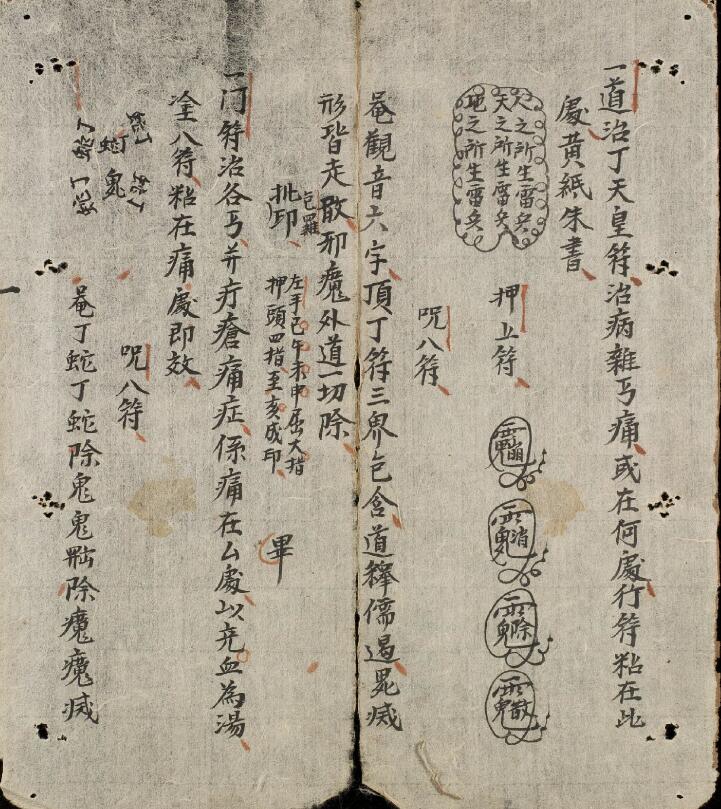 一道治丁天皇符治病雜丐痛或在何處行符粘在此
處黄紙朱書
人之所生雷兵
天之所生雷兵
地之所生雷兵
押上符
呪八符
唵觀音六字頂丁符三界包含道釋儒遏鬼滅
形皆走散邪魔外道一切除
批印
包羅
左手己午未申屈大指
押頭四指至亥成印
畢
一门符治各丐并疔瘡痛症係痛在厶處以
為湯
塗八符粘在痛處即效
蛇鬼
呪八符
唵丁蛇丁蛇除鬼鬼除魔魔滅